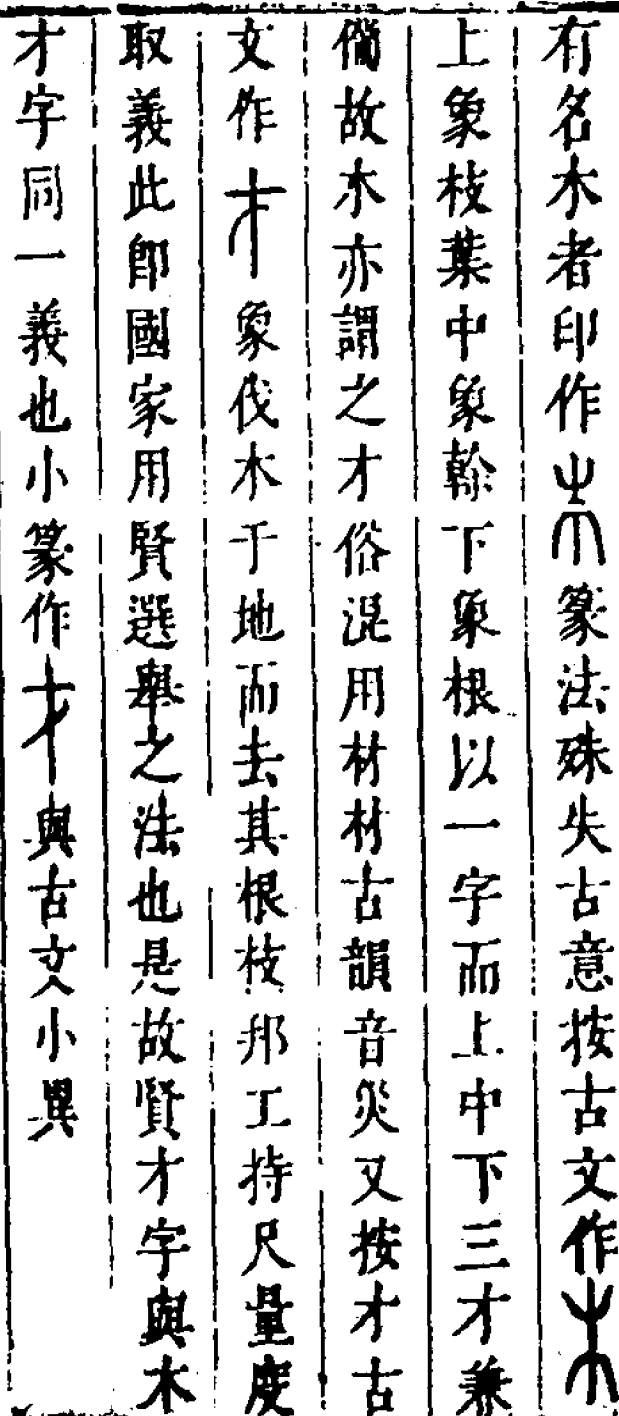 有名木者印作𣎳篆法殊失古意按古文作木
上象枝葉中象榦下象根以一字而上中下三才兼
僃故木亦謂之才俗混用材材古韻音災又按才古
文作才象伐木于地而去其根枝邦工持尺量度
取義此卽國家用賢選舉之法也是故賢才字與木
才字同一義也小篆作才與古文小異